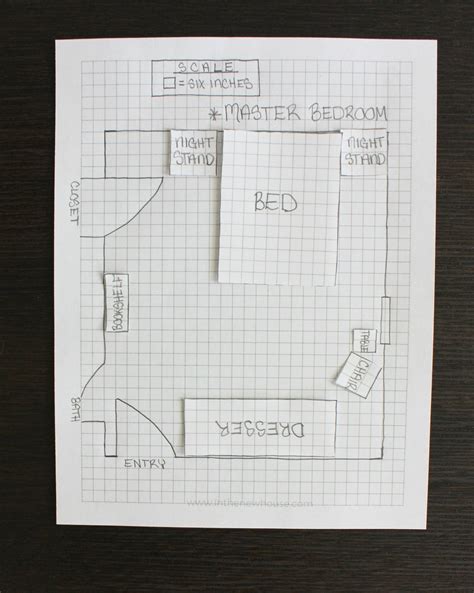 SCALE
=SIX INCHES
*MASTER BEDROOM
NIGHT
STAND
NIGHT
STAND
BED
CLOSET
BOOKSHELF
TABLE
CHAIR
BATH
DRESSER
ENTRY
www.inthenewhouse.com